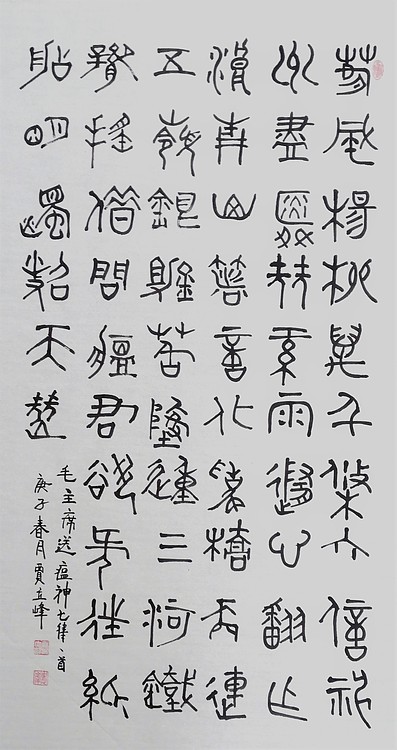 春風楊柳萬千條六億神
州盡舜堯紅雨隨心翻作
浪青山著意化為橋天連
五嶺銀鋤落地動三河鐵
臂搖借問瘟君欲何往紙
船明燭照天燒
毛主席送瘟神七律一首
庚子春月賈立峰